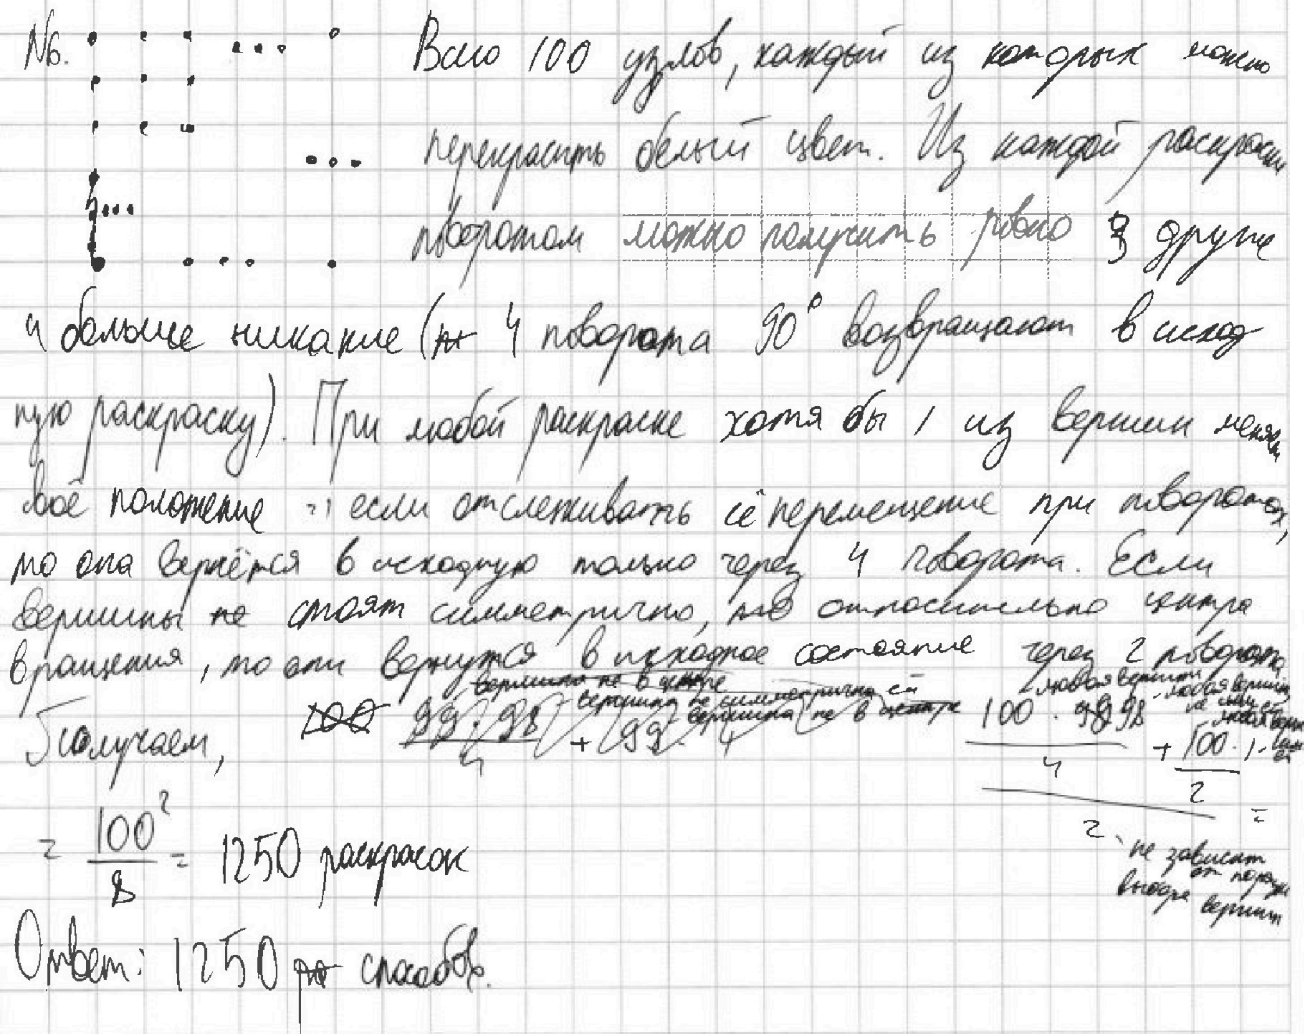 №6. Всего 100 узлов, каждый из которых можно
перекрасить белый цвет. Из каждой раскраски
поворотом можно получить ровно 3 другие
и больше никакие (4 поворота 90° возвращают в исход
ную раскраску). При любой раскраске хотя бы 1 из вершин меняет
своё положение => если отслеживать её перемещение при поворотах,
то она вернётся в исходную только через 4 поворота. Если
вершины стоят симметрично, относительно центра
вращения, то они вернутся в исходное состояние через 2 поворота
Получаем, 100 · 98 / 4 + 100 · 1 / 2 / 2 =
не зависит
от порядка
выбора вершин
= 100² / 8 = 1250 раскрасок
Ответ: 1250 способов.